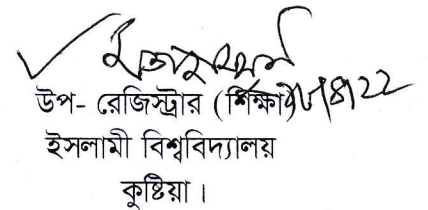 উপ- রেজিস্ট্রার (শিক্ষা)
ইসলামী বিশ্ববিদ্যালয়
কুষ্টিয়া।